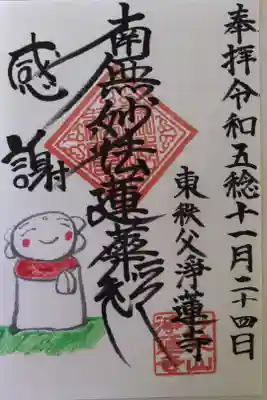 奉拝令和五稔十一月二十四日
東秩父浄蓮寺
南無妙法蓮華経
感謝